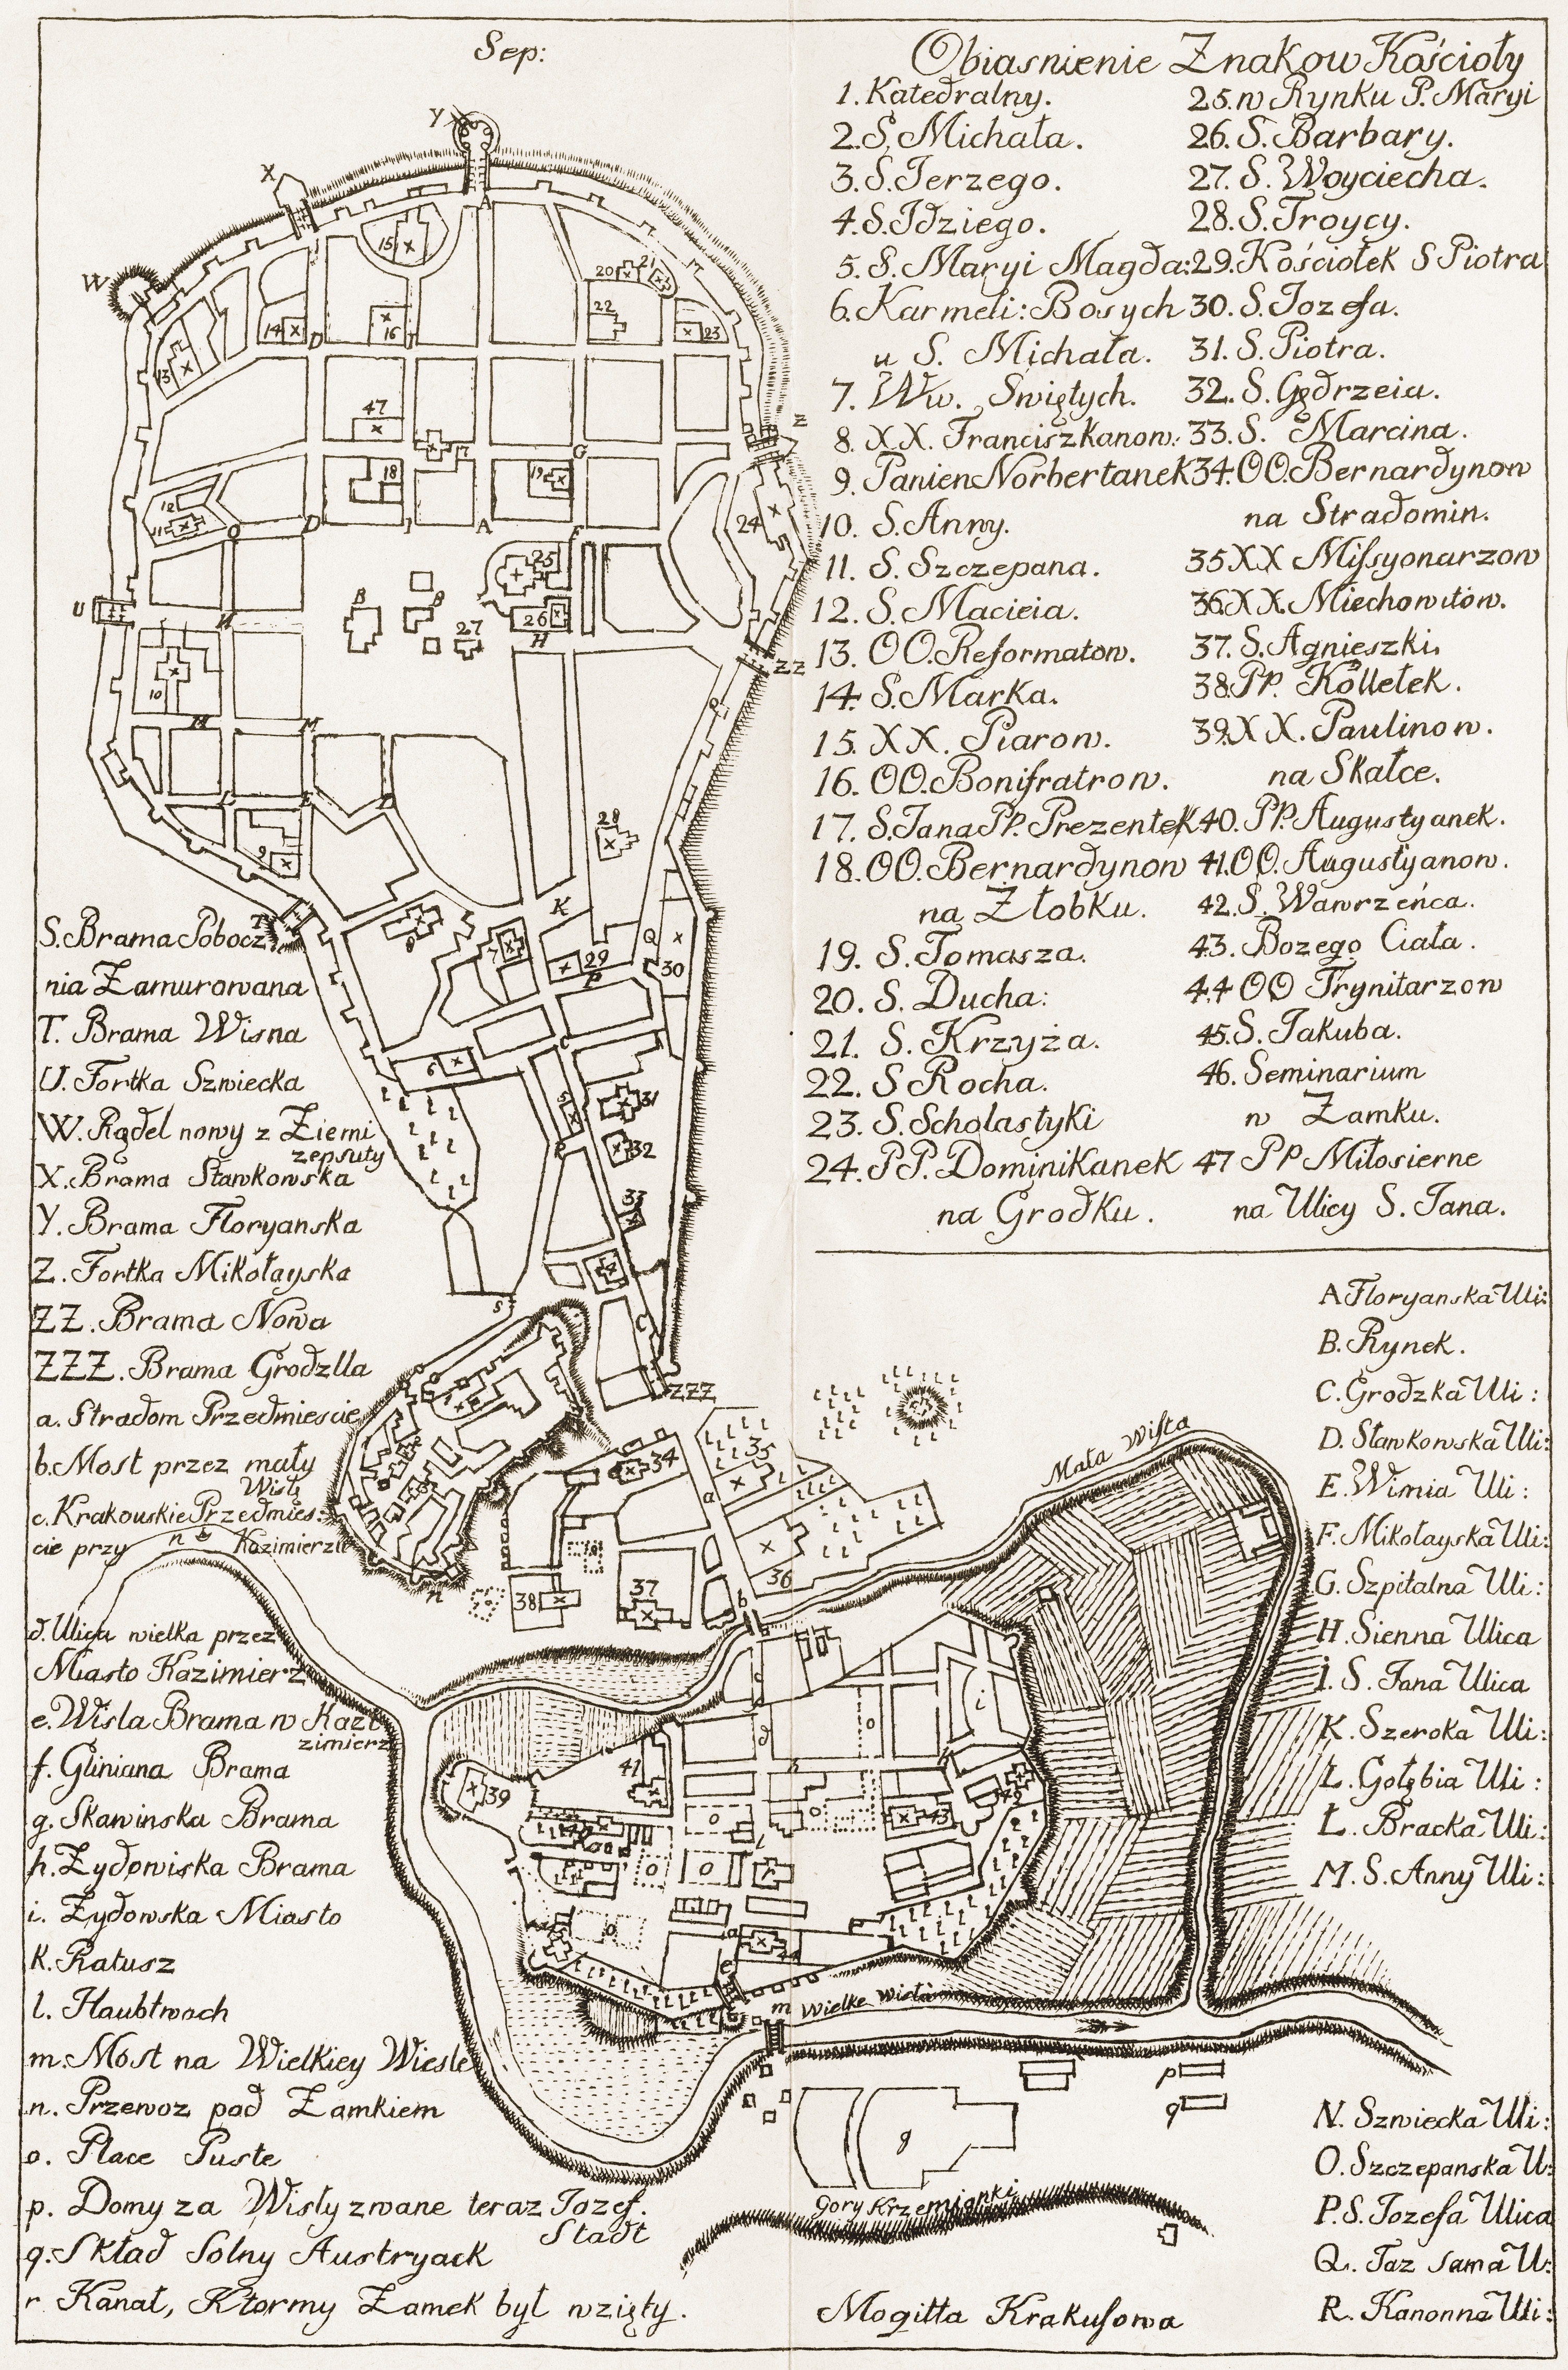 Sep:
Obiasnienie Znakow Kościoły
1. Katedralny.
2. S. Michała.
3. S. Jerzego.
4. S. Jdziego.
5. S. Maryi Magda:
6. Karmeli: Bosych
u S. Michała.
7. Ww. Swiętych.
8. XX. Franciszkanow:
9. Panien Norbertanek
10. S. Anny.
11. S. Szczepana.
12. S. Macieia.
13. OO. Reformatow.
14. S. Marka.
15. XX. Piarow.
16. OO. Bonifratrow.
17. S. Jana Pp. Prezentek
18. OO. Bernardynow
na Żłobku.
19. S. Tomasza.
20. S. Ducha:
21. S. Krzyża.
22. S Rocha.
23. S. Scholastyki
24. PP. Dominikanek
na Grodku.
25. w Rynku P. Maryi
26. S. Barbary.
27. S. Woyciecha.
28. S. Troycy.
29. Kościołek S Piotra
30. S. Jozefa.
31. S. Piotra.
32. S. Gędrzeia.
33. S. Marcina.
34. OO. Bernardynow
na Stradomin.
35 XX Missyonarzow
36. XX. Miechowitow.
37. S. Agnieszki.
38. Pp. Kolletek.
39. XX. Paulinow.
na Skałce.
40. Pp. Augustyanek.
41. OO. Augustyanow.
42. S. Wawrzeńca.
43. Bozego Ciała.
44 OO Trynitarzow
45. S. Jakuba.
46. Seminarium
w Zamku.
47 Pp Miłosierne
na Ulicy S. Jana.
S. Brama Pobocz
nia Zamurowana
T. Brama Wisna
U. Fortka Szwiecka
W. Rądel nowy z Ziemi
zepsuty
X. Brama Stawkowska
Y. Brama Floryanska
Z. Fortka Mikołayska
ZZ. Brama Nowa
ZZZ. Brama Grodzlla
a. Stradom Przedmiescie
b. Most przez mały
Wisłę
c. Krakowskie Przedmies:
cie przy Kazimierzu
d. Ulica wielka przez
Miasto Kazimierz
e. Wisla Brama w Kazi
zimierz
f. Gliniana Brama
g. Skawinska Brama
h. Zydowiska Brama
i. Zydowska Miasto
k. Ratusz
l. Haubtwach
m. Most na Wielkiey Wiesle
n. Przewoz pod Zamkiem
o. Place Puste
p. Domy za Wisły zwane teraz Jozef.
Stadt
q. Skład Solny Austryack
r Kanał, Ktormy Zamek był wzięty.
A Floryanska Uli:
B. Rynek.
C. Grodzka Uli:
D. Stawkowska Uli:
E. Wisnia Uli:
F. Mikołayska Uli:
G. Szpitalna Uli:
H. Sienna Ulica
I. S. Jana Ulica
K. Szeroka Uli:
L. Gołębia Uli:
Ł. Bracka Uli:
M. S. Anny Uli:
N. Szwiecka Uli:
O. Szczepanska U:
P. S. Jozefa Ulica
Q. Taz sama U:
R. Kanonna Uli:
Mała Wisła
Wielke Wisła
Gory Krzemionki
Mogiłta Krakusowa